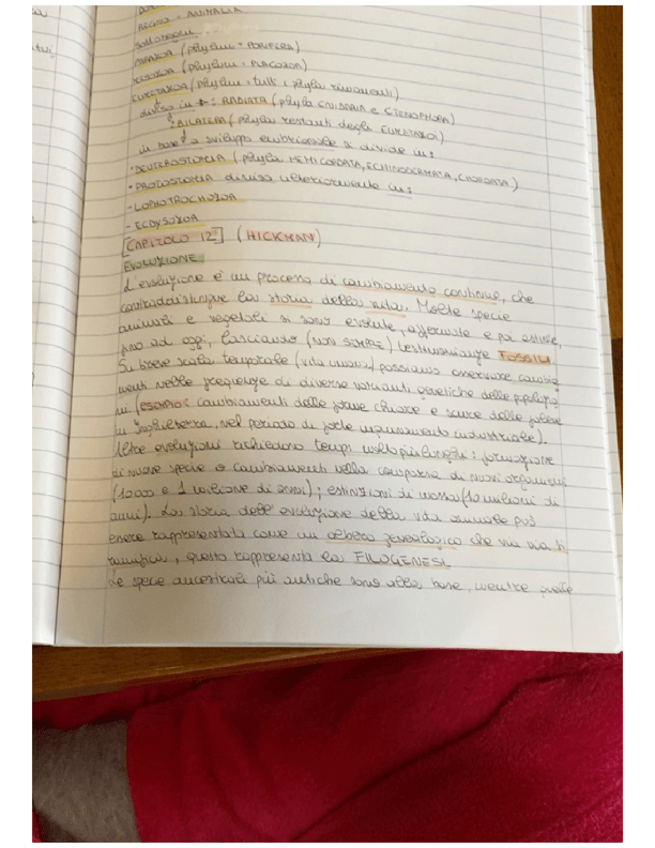 REGNO - ANIMALIA
Sottoregni
PARAZOA (phylum - PORIFERA)
MESOZOA (phylum - PLACOZOA)
EUMETAZOA (phylum - tutti i phyla rimanenti)
diviso in: RADIATA (phyla CNIDARIA e CTENOPHORA)
BILATERIA (phyla restanti degli EUMETAZOI)
in base a sviluppo embrionale si divide in:
• DEUTEROSTOMIA (phyla HEMICORDATA, ECHINODERMATA, CHORDATA)
• PROTOSTOMIA diviso ulteriormente in:
- LOPHOTROCHOZOA
- ECDYSOZOA
[CAPITOLO 12°] (HICKMAN)
EVOLUZIONE
L'evoluzione è un processo di cambiamento continuo, che
contraddistingue la storia della vita. Molte specie
animali e vegetali si sono evolute, affermate e poi estinte,
fino ad oggi, lasciando (NON SEMPRE) testimonianze FOSSILI
Su breve scala temporale (vita umana) possiamo osservare cambia
menti nelle frequenze di diverse varianti genetiche delle popolazio
ni (ESEMPIO: cambiamenti delle forme chiare e scure delle falene
in Inghilterra, nel periodo di forte inquinamento industriale).
Altre evoluzioni richiedono tempi molto più lunghi: formazione
di nuove specie o cambiamenti nella comparsa di nuovi organismi
(10000 e 1 milione di anni); estinzioni di massa (10 milioni di
anni). La storia dell'evoluzione della vita animale può
essere rappresentata come un albero genealogico che via via si
ramifica, questo rappresenta la FILOGENESI.
Le specie ancestrali più antiche sono alla base, mentre quelle